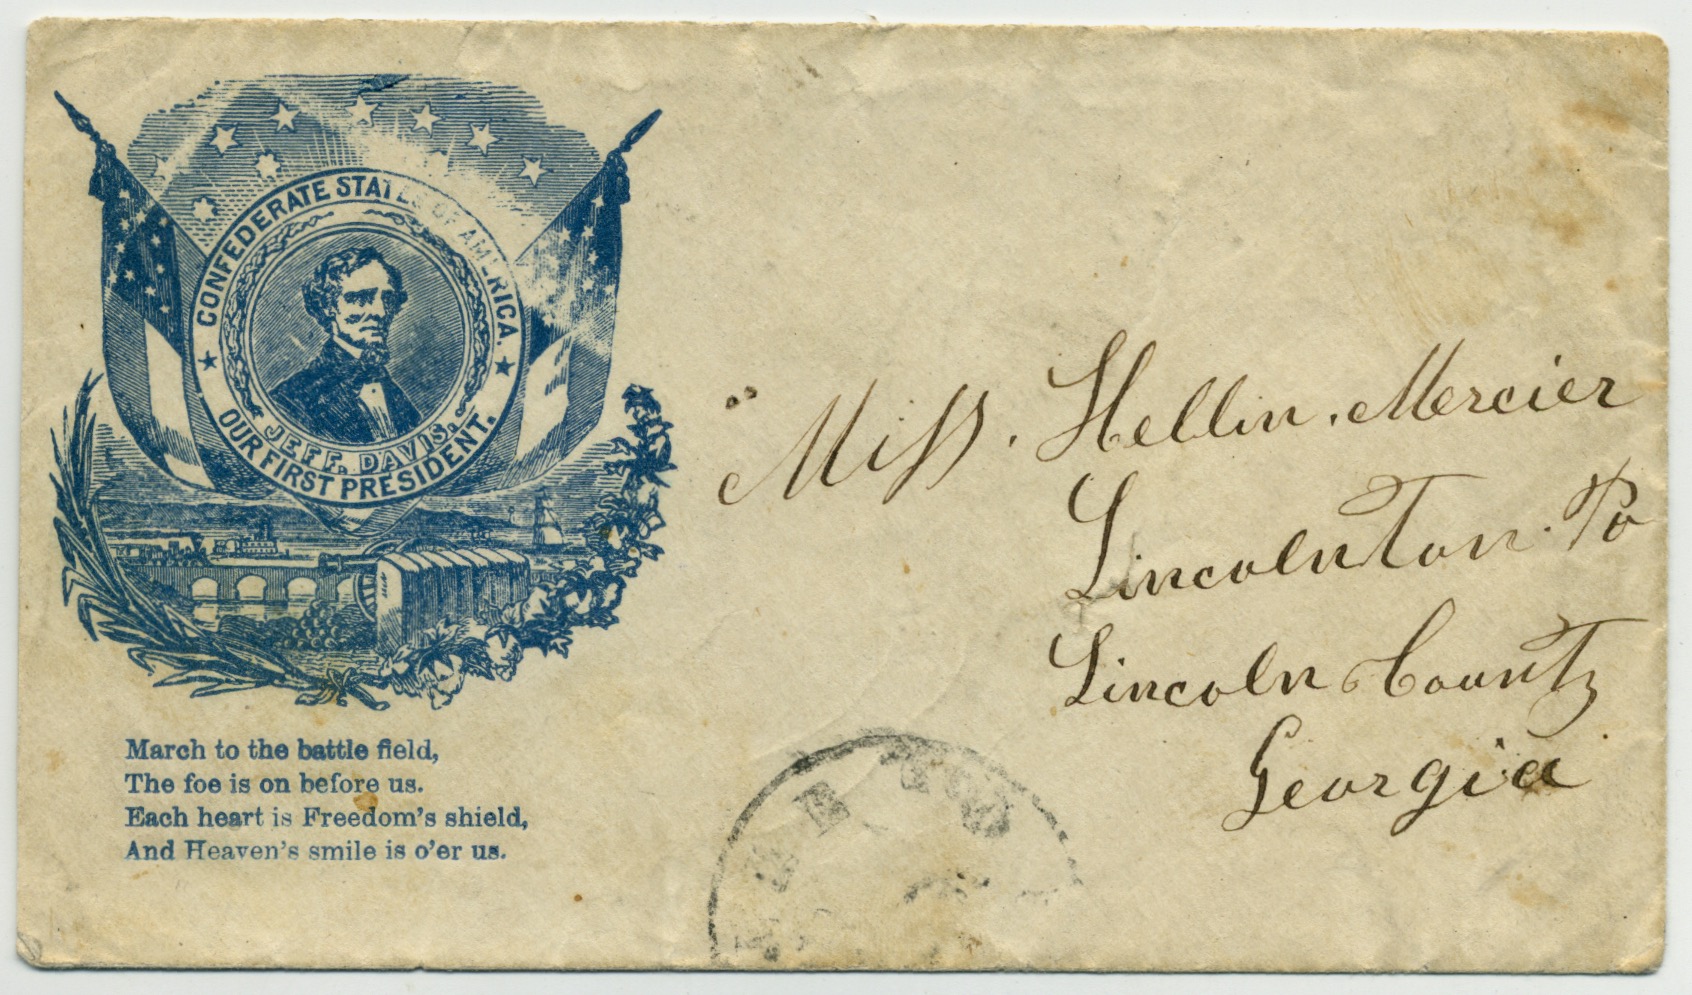 CONFEDERATE STATES OF AMERICA.
JEFF. DAVIS.
OUR FIRST PRESIDENT.
March to the battle field,
The foe is on before us.
Each heart is Freedom's shield,
And Heaven's smile is o'er us.
Miss. Hellin. Mercier
Lincolnton. Po
Lincoln County
Georgia